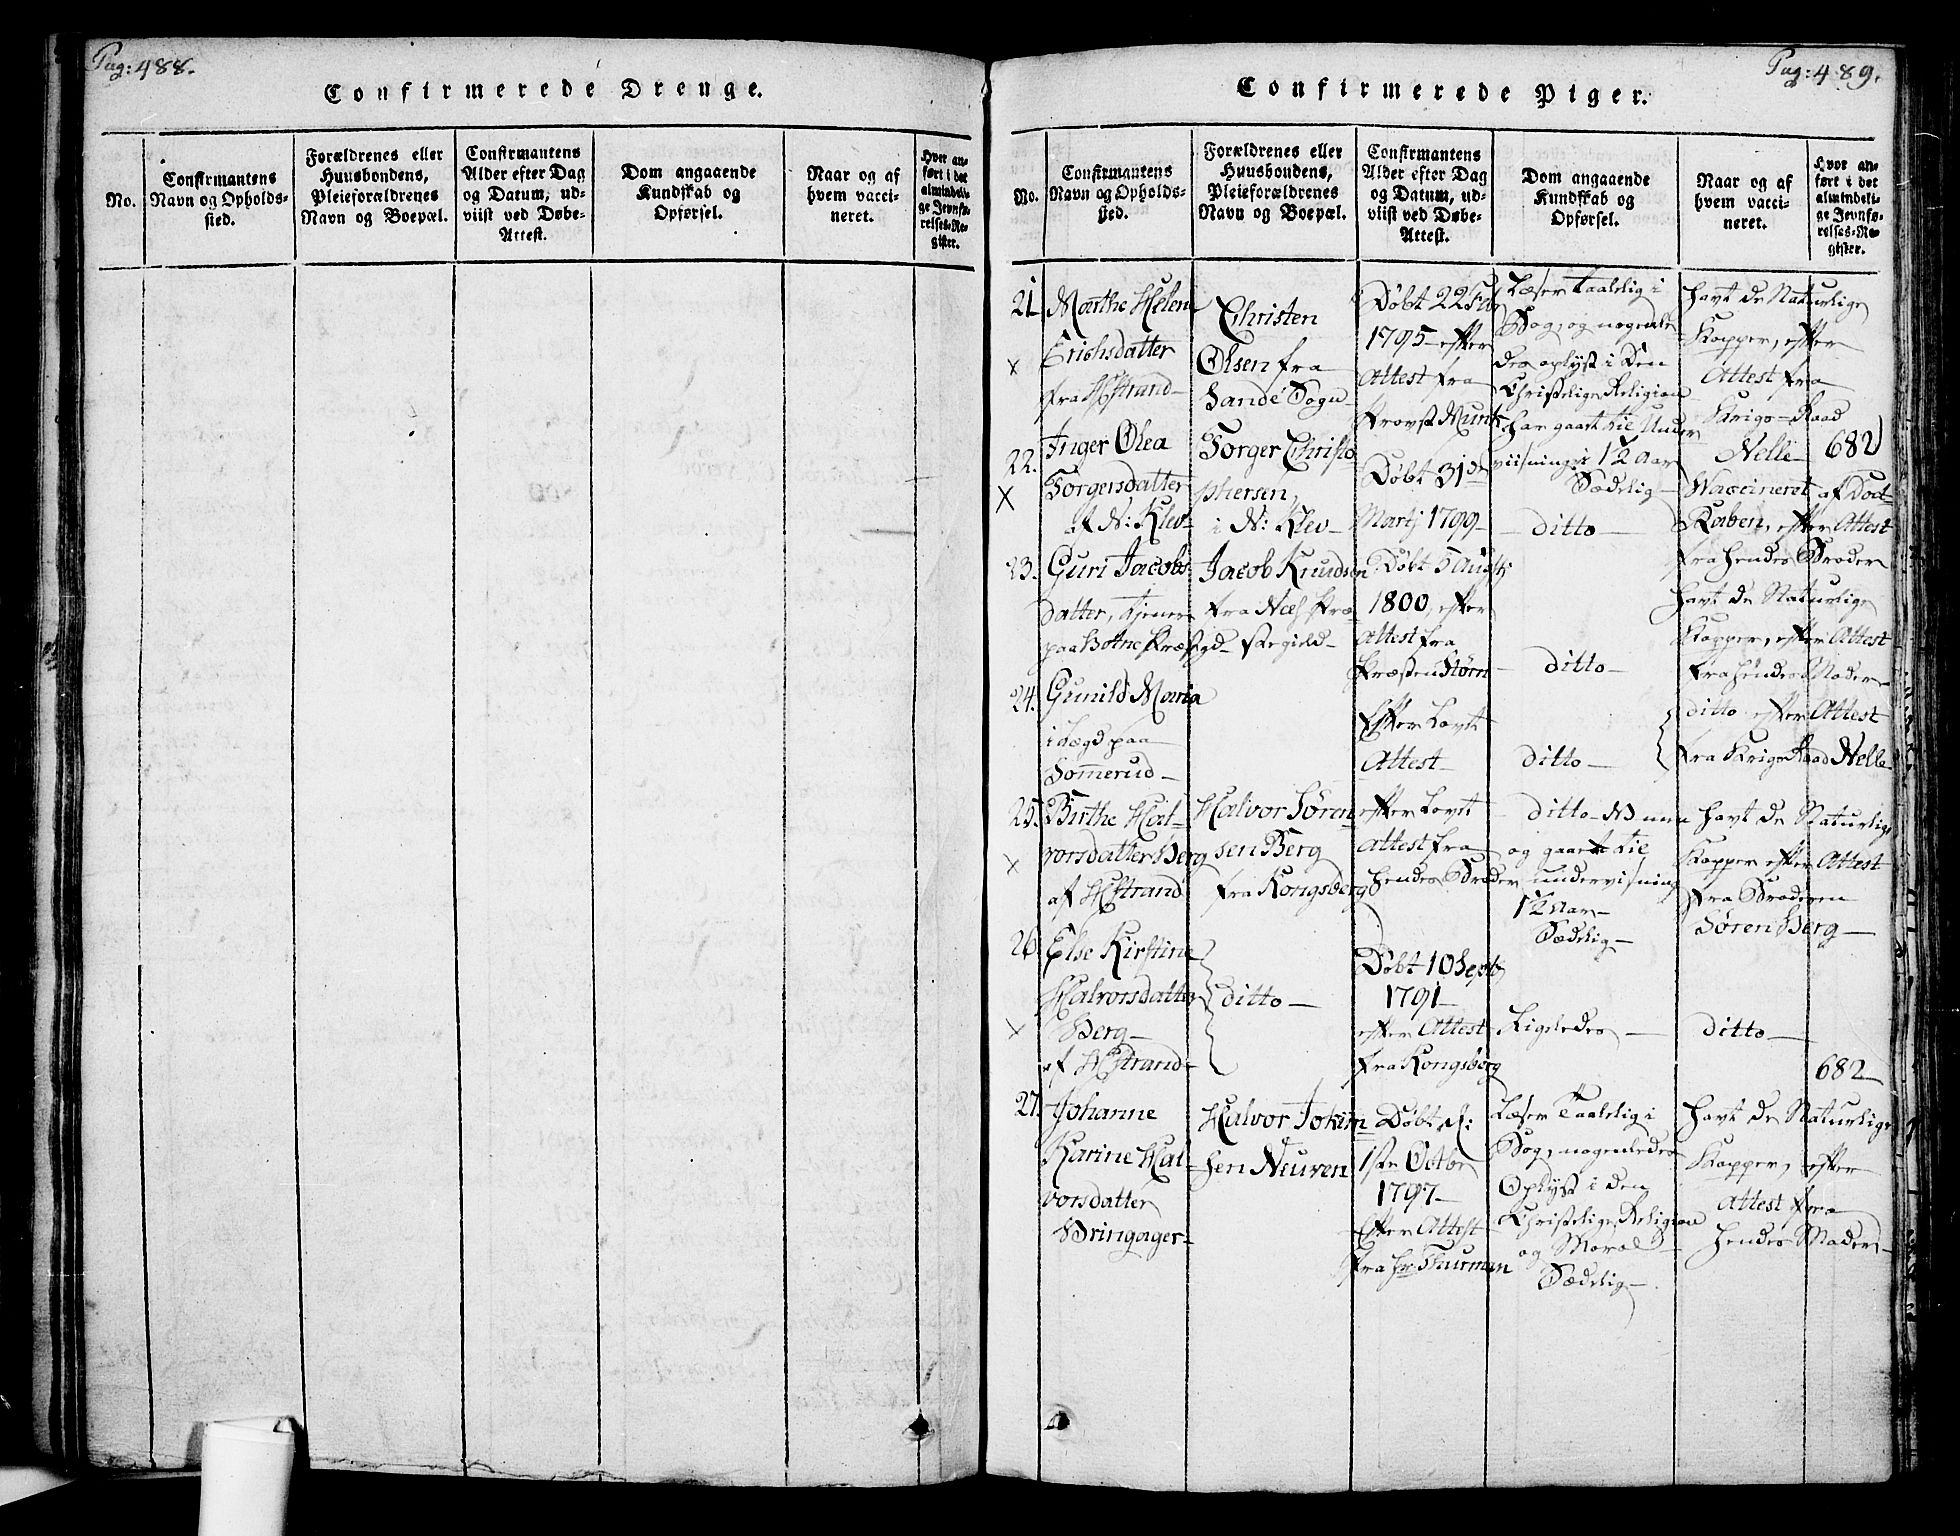 Pag: 488.
Confirmerede Drenge.
No.
Confirmantens
Navn og Opholds-
sted.
Forældrenes eller
Huusbondens,
Pleieforældrenes
Navn og Boepæl.
Confirmantens
Alder efter Dag
og Datum, ud-
viist ved Døbe-
Attest.
Dom angaaende
Kundskab og
Opførsel.
Naar og af
hvem vacci-
neret.
Hvor an-
ført i det
almindeli-
ge Jevnfø-
relses-Re-
gister.
Pag: 489.
Confirmerede Piger.
No.
Confirmantens
Navn og Opholds-
sted.
Forældrenes eller
Huusbondens,
Pleieforældrenes
Navn og Boepæl.
Confirmantens
Alder efter Dag
og Datum, ud-
viist ved Døbe-
Attest.
Dom angaaende
Kundskab og
Opførsel.
Naar og af
hvem vacci-
neret.
Hvor an-
ført i det
almindeli-
ge Jevnfø-
relses-Re-
gister.
21.
x
Marthe Helene
Erichsdatter
fra H:strand-
Christen
Olsen fra
Sande Sogn-
Døbt 22 Feb
1795 efter
Attest fra
Provst Munk
Læser Taalelig i
Bog, og nogenle-
des oplyst i Den
Christelige Religion
har gaaet til Under-
viisning i 12 Aar
Sædelig-
Havt de Naturlige
Kopper, efter
Attest fra
Krigs-Raad
Nelle-
682
22.
X
Inger Olea
Torgersdatter
af N: Klev-
Torger Christo-
phersen,
i N: Klev-
Døbt 31de
Martj 1799-
ditto-
Vaccineret af Doct
Raben, efter Attest
fra hendes Broder
23.
Guri Jacobs-
datter, tjener
paa Botne Præstgd-
Jacob Knudsen
fra Næs Præ-
stegield-
Døbt 5 Augstj
1800, efter
Attest fra
Præsten Støren
ditto-
Havt de Naturlige
Kopper, efter Attest
fra hendes Moder-
24.
Gunild Maria
i Lægd paa
Sommerud-
Efter Lovlt
Attest-
ditto-
ditto efter Attest
fra Krigs Raad Nelle
25.
x
Birthe Hal-
vorsdatter Berg
af H:strand
Halvor Søren-
sen Berg
fra Kongsberg
efter Lovlt
Attest fra
hendes Broder
ditto
og gaaet til
undervisning
12 Aar-
Sædelig-
Havt de Naturlige
Kopper efter Attest
fra Broderen
Søren Berg-
26.
x
Else Kirstine
Halvorsdatter
Berg-
af H:strand-
ditto-
Døbt 10 Septb
1791-
efter Attest
fra Kongsberg
Ligeledes-
ditto-
682-
27.
Johanne
Karine Hal-
vorsdatter
Bringager-
Halvor Jokim-
sen Neuren
Døbt d:
1ste Octbr
1797-
Efter Attest
fra Hr Thurman
Læser Taalelig i
Bog, nogenledes
Oplyst i den
Christelige Religion
og Moral-
Sædelig-
Havt de Naturlige
Kopper, efter
Attest fra
hendes Moder-